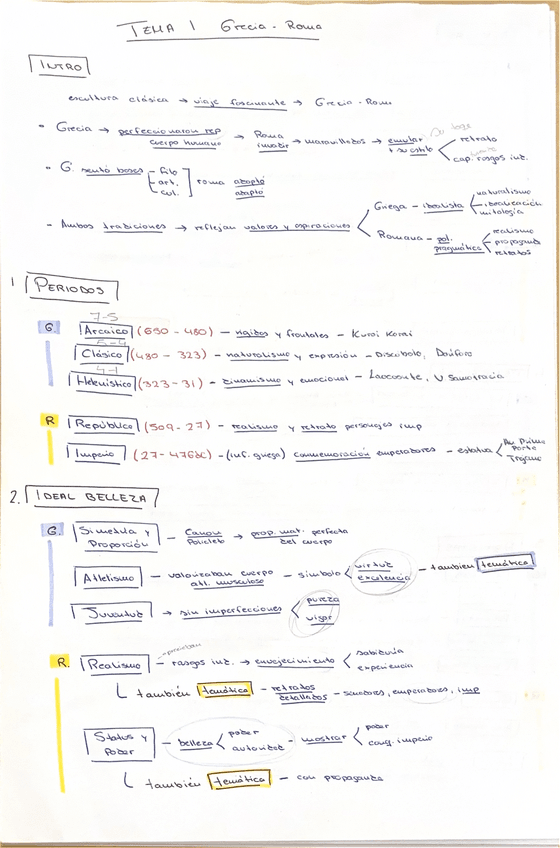 TEMA 1 Grecia - Roma
INTRO
escultura clásica → viaje fascinante → Grecia - Roma
- Grecia → perfeccionaron rep cuerpo humano → Roma → maravillados → emular + su estilo < retrato
cap. rasgos ind.
- G. sentó bases - filo
- art.
- cul.
roma adoptó
adaptó
- Ambas tradiciones → reflejan valores y aspiraciones < Griega - idealista < naturalismo
- idealización
mitología
Romana - pol. pragmática < realismo
propaganda
retratos
1 PERIODOS
7-5
G. Arcaico (650 - 480) - rígidos y frontales - Kuroi Korai
5-4
Clásico (480 - 323) - naturalismo y expresión - Discóbolo, Doríforo
4-1
Helenístico (323 - 31) - dinamismo y emocional - Laocoonte, V Samotracia
R República (509 - 27) - realismo y retrato personajes imp
Imperio (27 - 476dC) - (inf. griega) conmemoración emperadores - estatua < Au Prima Porta
Trajano
2. IDEAL BELLEZA
G. Simetría y Proporción - Canon Policleto → prop. mat. perfecta del cuerpo
Atletismo - valoraban cuerpo atl. musculoso - símbolo < virtud
excelencia
- también temática
Juventud → sin imperfecciones < pureza
vigor
R. Realismo - rasgos ind. → envejecimiento < sabiduría
experiencia
también temática - retratos detallados - senadores, emperadores, imp
Status y Poder - belleza < poder
autoridad
- mostrar < poder
conq. imperio
también temática - con propaganda